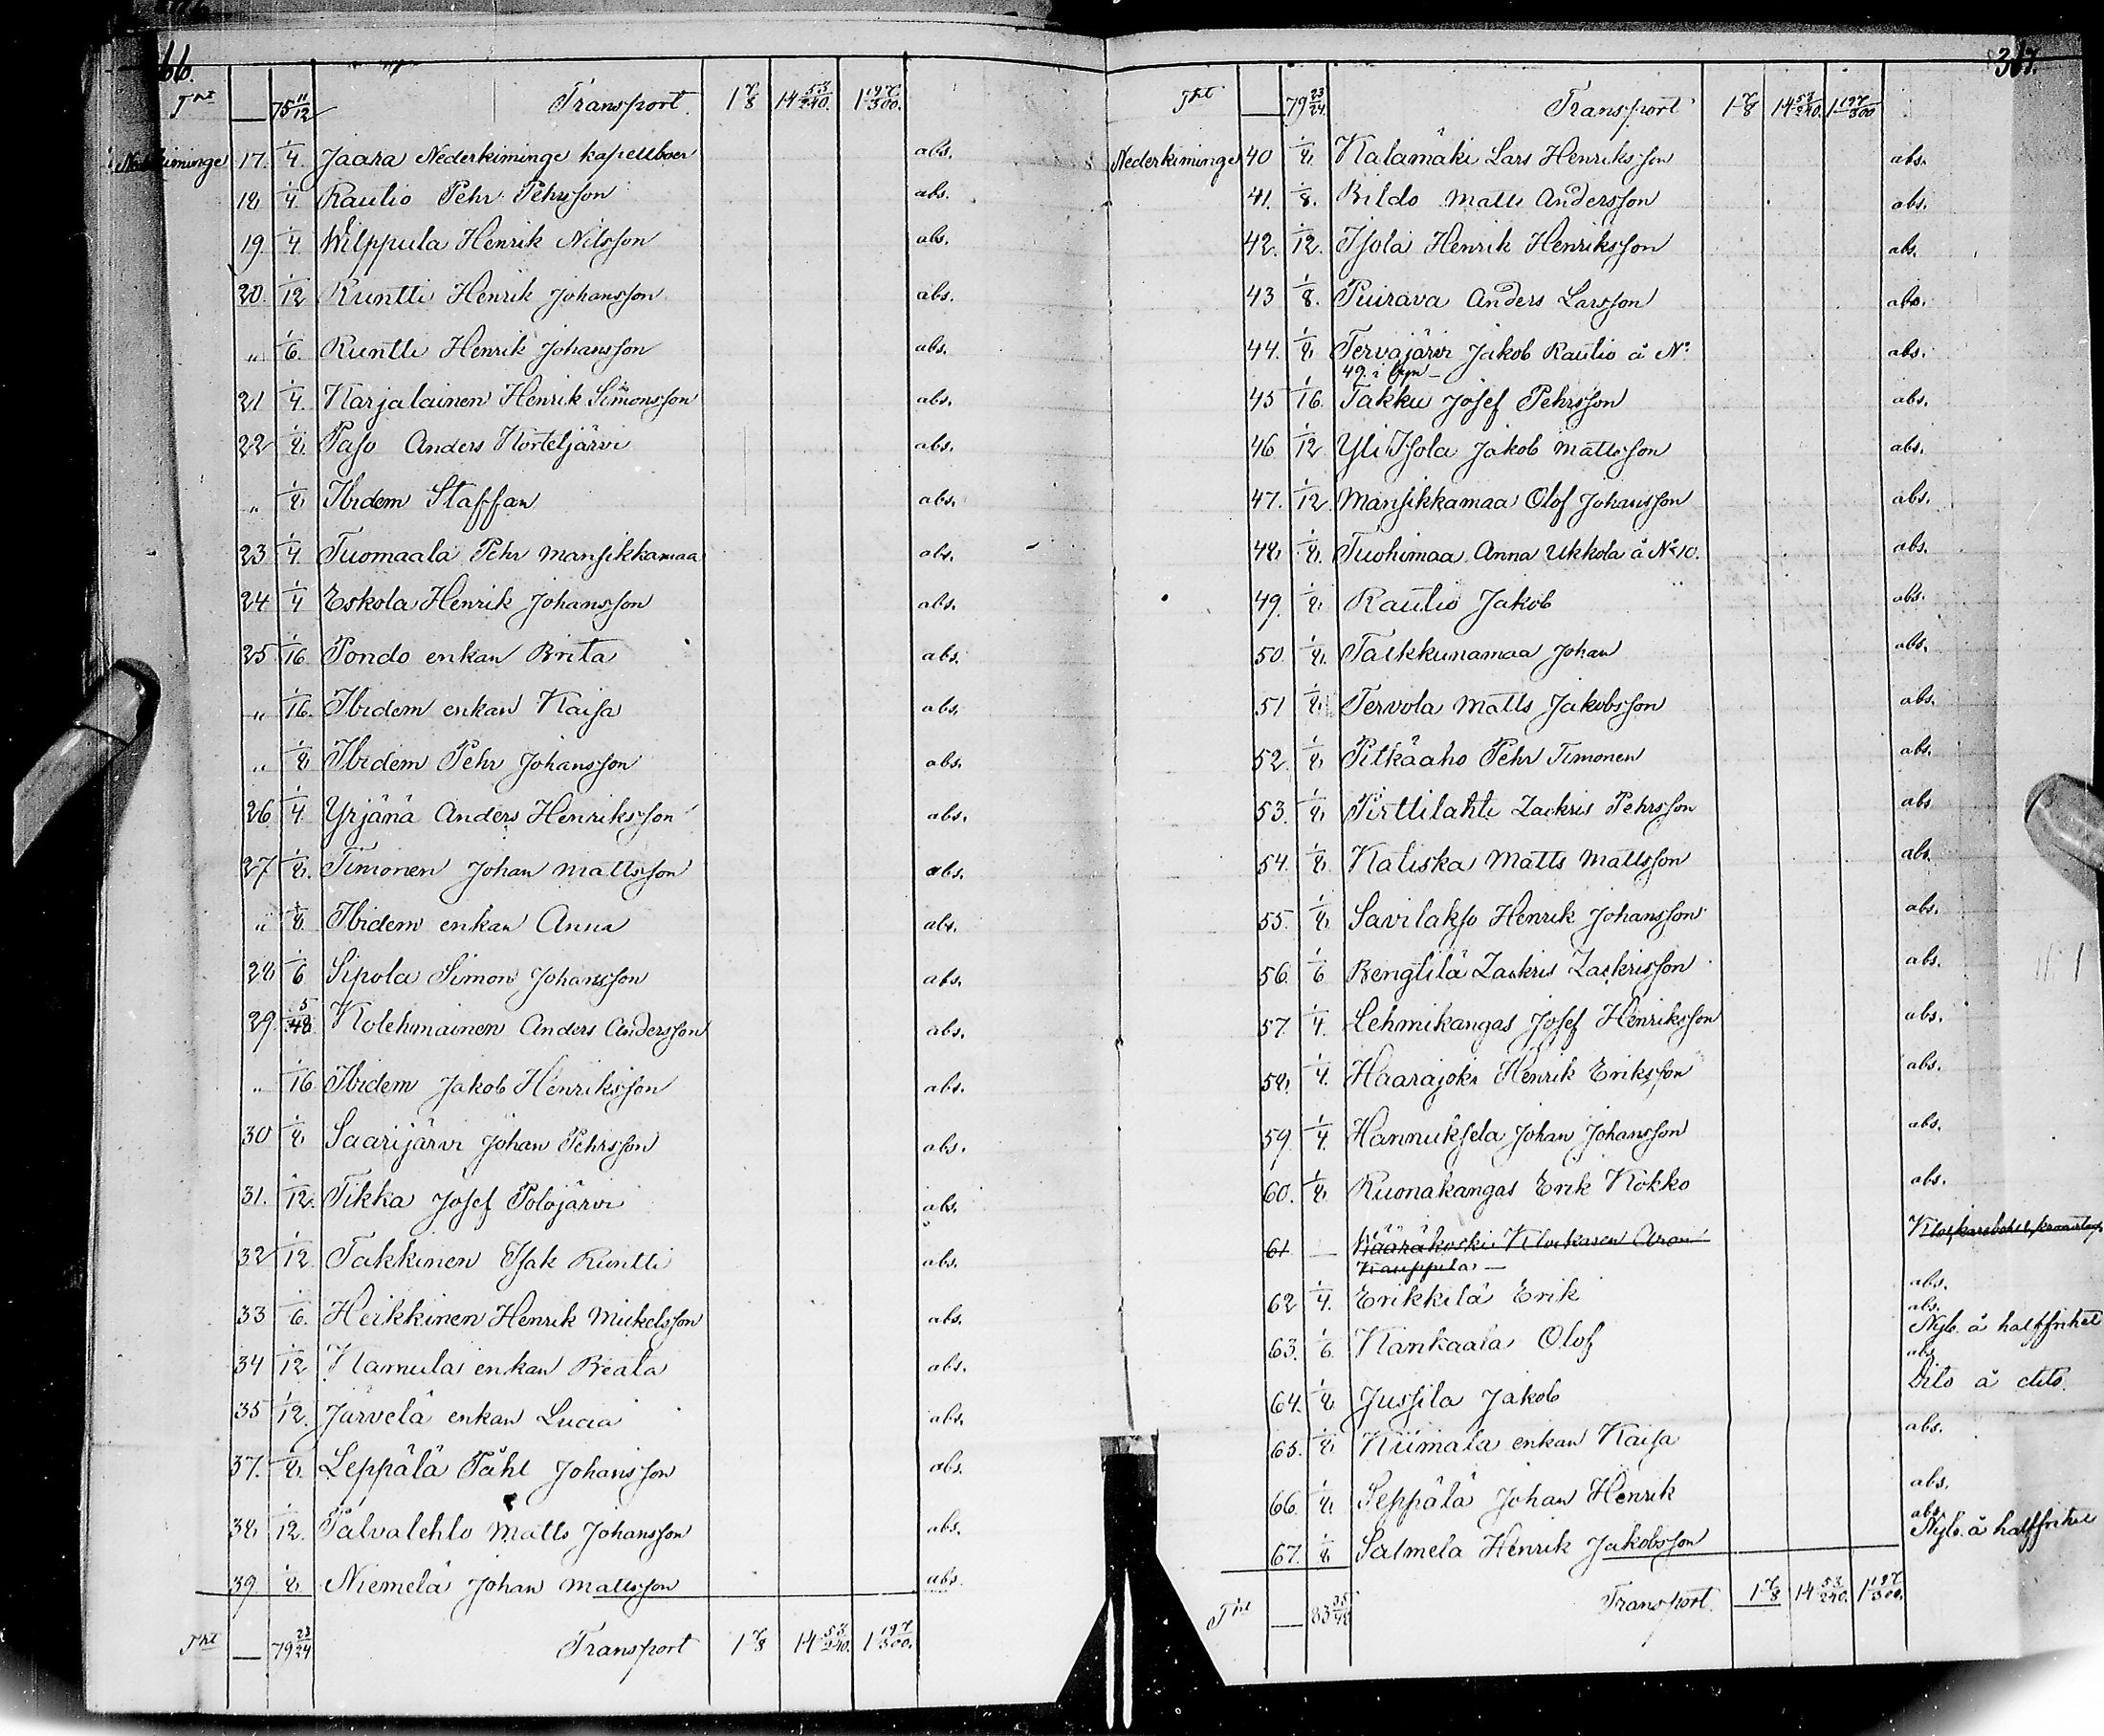 66.
Tnt — 75 11/12 Transport. 1 7/8 14 53/240. 1 197/300.
Nederkiminge 17. 1/4 Jaara Nederkiminge kapellboer abs.
18 1/4. Rautio Pehr Pehrsson abs.
19. 1/4 Wilppula Henrik Nilsson abs.
20. 1/12 Kuntti Henrik Johansson abs.
" 1/6 Kuntti Henrik Johansson abs.
21 1/4. Karjalainen Henrik Simonsson abs.
22 1/8. Paso Anders Korteljärvi abs.
" 1/8 Ibidem Staffan abs.
23 1/4. Tuomaala Pehr Mansikkamaa abs.
24 1/4 Eskola Henrik Johansson abs.
25 1/16 Pondo enkan Brita abs.
" 1/16. Ibidem enkan Kaisa abs.
" 1/8 Ibidem Pehr Johansson abs.
26. 1/4. Yrjänä Anders Henriksson abs.
27 1/8. Timonen Johan Mattsson abs.
" 1/8 Ibidem enkan Anna abs.
28 1/6 Sipola Simon Johansson abs.
29. 5/48 Kolehmainen Anders Andersson abs.
" 1/16 Ibidem Jakob Henriksson abs.
30 1/8 Saarijärvi Johan Pehrsson abs.
31. 1/12. Tikka Josef Polojärvi abs.
32 1/12 Takkinen Isak Kuntti abs.
33 1/6. Heikkinen Henrik Mickelsson abs.
34 1/12 Kamula enkan Beata abs.
35 1/12. Järvelä enkan Lucia abs.
37. 1/8. Leppälä Påhl Johansson abs.
38 1/12. Palvalehto Matts Johansson abs.
39. 1/8. Niemelä Johan Mattsson abs.
Tnt — 79 23/24 Transport 1 7/8 14 53/240. 1 197/300.
367.
Tnt — 79 23/24. Transport 1 7/8 14 53/240. 1 197/300
Nederkiminge 40 1/8. Kalamäki Lars Henriksson abs.
41. 1/8. Bildo Matts Andersson abs.
42. 1/12. Isola Henrik Henriksson abs.
43 1/8. Puirava Anders Larsson abs.
44. 1/8 Tervajärvi Jakob Rautio å No
49. i byn — abs.
45 1/16. Takku Josef Pehrsson abs.
46 1/12 Yli Isola Jakob Mattsson abs.
47. 1/12 Mansikkamaa Olof Johansson abs.
48. 1/8. Tuohimaa Anna Ukkola å No 10. abs.
49. 1/8 Rautio Jakob abs.
50 1/8. Taikkunamaa Johan abs.
51 1/8 Tervola Matts Jakobsson abs.
52. 1/8 Pitkäaho Pehr Timonen abs.
53. 1/8 Pirttilahti Zackris Pehrsson abs
54. 1/8. Katiska Matts Mattsson abs.
55. 1/8 Savilakso Henrik Johansson abs.
56. 1/6 Bengtilä Zackris Zackrisson abs.
57. 1/4. Lehmikangas Josef Henriksson abs.
58. 1/4. Haarajoki Henrik Eriksson abs.
59. 1/4. Hannuksela Johan Johansson abs.
60. 1/8. Kuonakangas Erik Kokko abs.
61 — Wääräkoski Klockaren Aron
Kauppila —
62 1/4. Erikkilä Erik abs.
63. 1/6. Kankaala Olof abs. Nyb. å halffrihet
64. 1/8 Jussila Jakob abs Dito å dito.
65. 1/8 Kiimala enkan Kaisa abs.
66. 1/8. Seppälä Johan Henrik abs.
67. 1/8 Salmela Henrik Jakobsson abs. Nyb. å halffrihet
Tnt — 83 35/48 Transport. 1 7/8 14 53/240. 1 197/300.